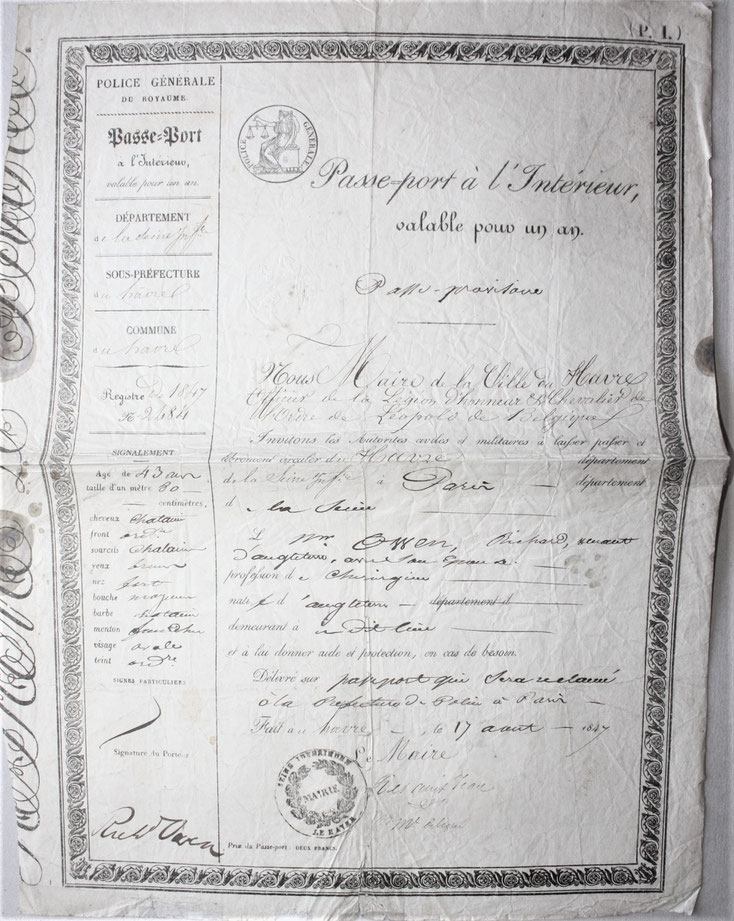 (P. I.)
POLICE GÉNÉRALE
DU ROYAUME.
Passe=Port
à l'Intérieur,
valable pour un an.
DÉPARTEMENT
de la Seine Infre
SOUS-PRÉFECTURE
du havre
COMMUNE
du havre
Registre 1847
N° 2484
SIGNALEMENT
Agé de 43 ans
taille d'un mètre 80
centimètres,
cheveux Chatain
front ordre
sourcils Chatain
yeux
nez fort
bouche moyen
barbe Chatain
menton
visage ovale
teint ordre
SIGNES PARTICULIERS
Signature du Porteur
Richd Owen
POLICE GÉNÉRALE
Passe=port à l'Intérieur,
valable pour un an.
Passe-provisoire
Nous Maire de la Ville du Havre
Officier de la Légion d'honneur & Chevalier de
l'Ordre de Léopold de Belgique
Invitons les Autorités civiles et militaires à laisser passer et
librement circuler du Havre département
de la Seine Infre à Paris département
d la Seine
L Mr Owen, Richard, venant
d'angleterre, avec son Epouse
profession de Chirurgien
natif d'angleterre département d
demeurant à dit lieu
et à lui donner aide et protection, en cas de besoin.
Délivré sur passeport qui sera réclamé
à la Préfecture de Police à Paris
Fait au havre, le 17 aout 1847
Le Maire
SEINE INFÉRIEURE
MAIRIE
LE HAVRE
Prix du Passe-port: DEUX FRANCS.